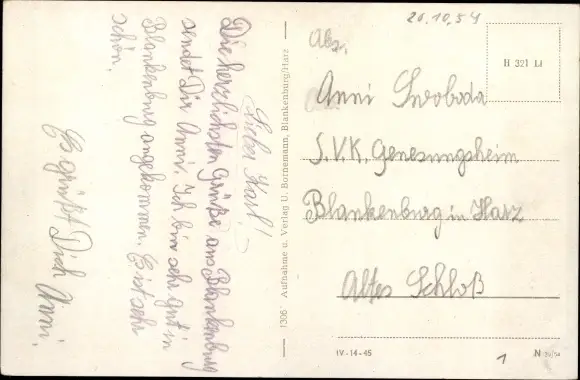 Lieber Karl!
Die herzlichsten Grüße aus Blankenburg
sendet Dir Anni. Ich bin sehr gut in
Blankenburg angekommen. Es ist sehr
schön.
Es grüßt Dich Anni.
1306 Aufnahme u. Verlag U. Bornemann, Blankenburg/Harz
20.10.54
H 321 LI
Abs.
Anni Swoboda
S.V.K. Genesungsheim
Blankenburg in Harz
Altes Schloß
IV-14-45
1
N